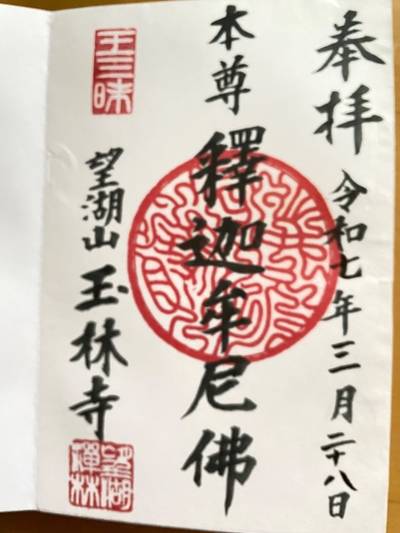 奉拝
令和七年三月二十八日
本尊
釋迦牟尼佛
王三昧
望湖山
玉林寺
望湖
禅林